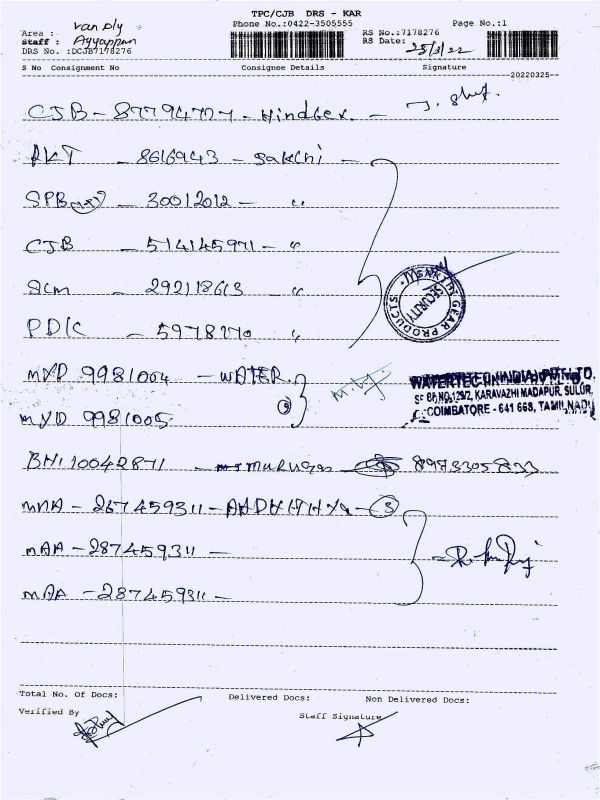 TPC/CJB DRS - KAR
Phone No.:0422-3505555 Page No.:1
Area : van Dly
Staff : Ayyappan
DRS No. :DCJB7178276
RS No.:7178276
RS Date: 25/3/22
S No Consignment No Consignee Details Signature
20220325
CJB - 877947 - Hindtex -
AKT - 8616943 - Sakthi -
SPB - 30012012 - "
CJB - 514145971 - "
SCM - 292118613 "
PDK - 5978270 "
SAKTHI GEAR PRODUCTS
SECURITY
MYD 9981004 - WATER.
MYD 9981005
WATERTEC (INDIA) PVT. LTD.
SF NO.129/2, KARAVAZHI MADAPUR, SULUR,
COIMBATORE - 641 668, TAMIL NADU
BHI 10042871 - murugan 8973305833
MAA - 267459311 - - 3
MAA - 287459311 -
MAA - 287459311 -
Total No. Of Docs: Delivered Docs: Non Delivered Docs:
Verified By Staff Signature